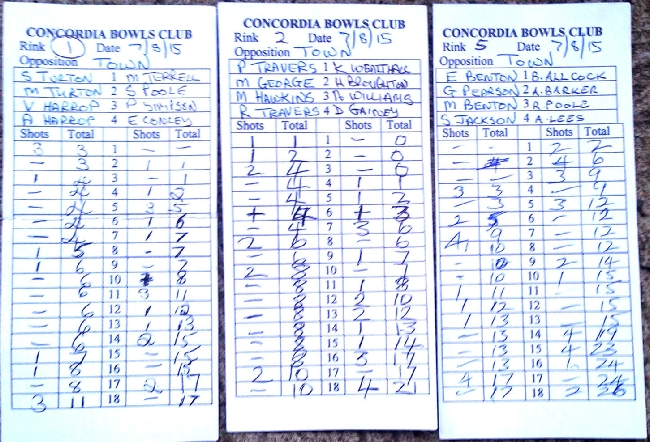 CONCORDIA BOWLS CLUB
Rink 1 Date 7/8/15
Opposition TOWN
S TURTON 1 M TERRELL
M TURTON 2 S POOLE
V HARROP 3 P SIMPSON
A HARROP 4 E CONLEY
Shots Total Shots Total
3 3 1 — —
— 3 2 1 1
1 4 3 — 1
— 4 4 1 2
— 4 5 3 5
— 4 6 1 6
— 4 7 1 7
1 5 8 — 7
1 6 9 — 7
— 6 10 8
— 6 11 3 11
— 6 12 1 12
— 6 13 1 13
— 6 14 2 15
1 7 15 — 15
1 8 16 — 15
— 8 17 2 17
3 11 18 — 17
CONCORDIA BOWLS CLUB
Rink 2 Date 7/8/15
Opposition TOWN
P TRAVERS 1 K
M GEORGE 2 H BROUGHTON
M HAWKINS 3 WILLIAMS
R TRAVERS 4 D GAINEY
Shots Total Shots Total
1 1 1 — 0
1 2 2 — 0
2 4 3 — 0
— 4 4 1 1
— 4 5 1 2
6 3
— 4 7 3 6
2 6 8 — 6
— 6 9 1 7
2 8 10 — 7
— 8 11 1 8
— 8 12 2 10
— 8 13 2 12
— 8 14 1 13
— 8 15 1 14
— 8 16 3 17
2 10 17 — 17
— 10 18 4 21
CONCORDIA BOWLS CLUB
Rink 5 Date 7/8/15
Opposition TOWN
E BENTON 1 B. ALLCOCK
G PEARSON 2 A. BARKER
M BENTON 3 R POOLE
S JACKSON 4 A. LEES
Shots Total Shots Total
— — 1 2 2
— 2 4 6
— — 3 3 9
3 3 4 — 9
— 3 5 3 12
2 5 6 — 12
4 9 7 — 12
1 10 8 — 12
— 10 9 2 14
— 10 10 1 15
1 11 11 — 15
1 12 12 — 15
1 13 13 — 15
— 13 14 4 19
— 13 15 4 23
— 13 16 1 24
4 17 17 — 24
— 17 18 2 26